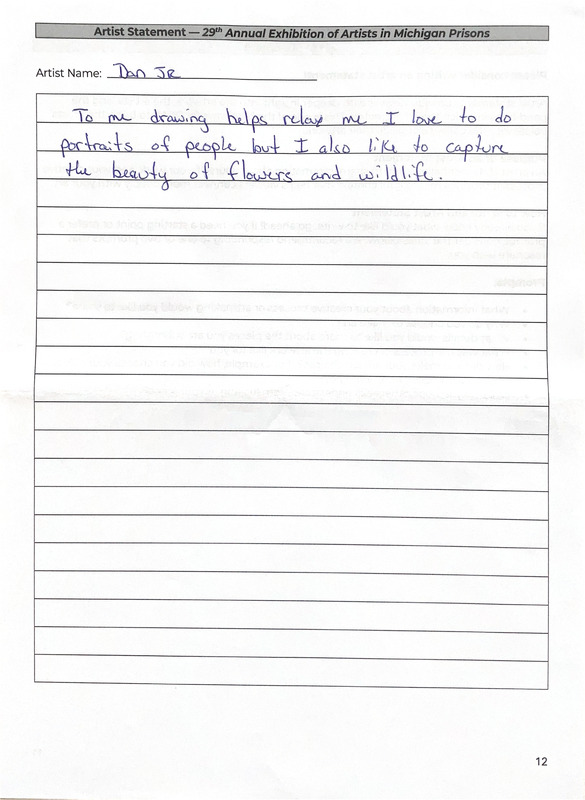 Artist Statement — 29th Annual Exhibition of Artists in Michigan Prisons
Artist Name: Dan JR
To me drawing helps relax me I love to do
portraits of people but I also like to capture
the beauty of flowers and wildlife.
12